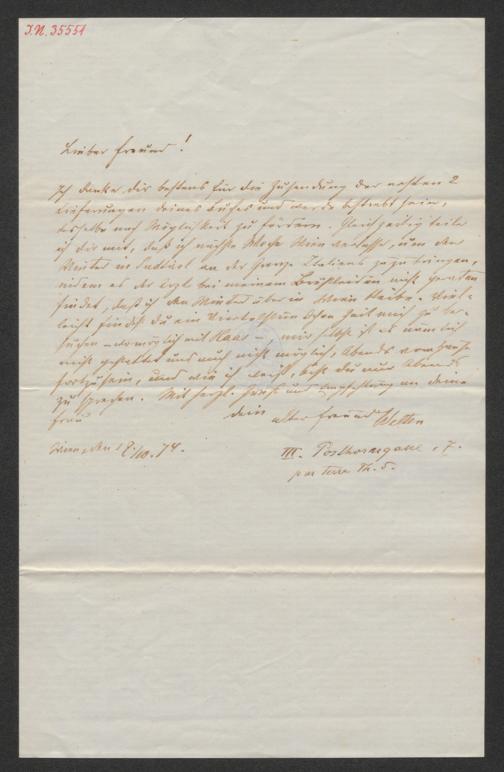 I.N. 35551
Lieber Freund!
Ich danke dir bestens für die Zusendung der ersten 2
Lieferungen deines Buches und werde bestrebt sein,
dasselbe nach Möglichkeit zu fördern. Gleichzeitig teile
ich dir mit, daß ich nächste Woche Wien verlasse, um den
Winter in Südtirol an der Grenze Italiens zuzubringen,
indem es der Arzt bei meinem Brustleiden nicht geraten
findet, daß ich den Winter über in Wien bleibe. Viel-
leicht findest du ein Viertelstündchen Zeit mich zu be-
suchen – womöglich mit Haas –, mir selbst ist es nämlich
nicht gestattet und auch nicht möglich, Abends vom Hause
fortzusein, und wie ich weiß, bist du nur Abends
zu sprechen. Mit herzl. Gruß und Empfehlung an deine
Frau
dein alter Freund Welten
Wien, den /10. 74.
III. Posthorngasse, 7.
par terre Th. 5.